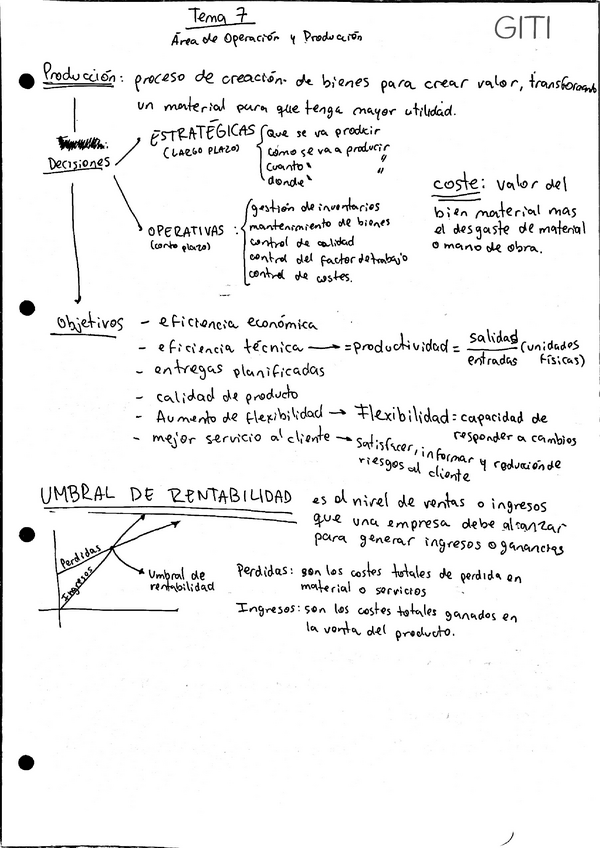 Tema 7
GITI
Área de Operación y Producción
Producción: proceso de creación de bienes para crear valor, transformando
un material para que tenga mayor utilidad.
Decisiones
ESTRATÉGICAS
(LARGO PLAZO)
Que se va producir
cómo se va a producir
cuanto " "
donde " "
OPERATIVAS :
(corto plazo)
gestión de inventarios
mantenimiento de bienes
control de calidad
control del factor de trabajo
control de costes.
coste: valor del
bien material mas
el desgaste de material
o mano de obra.
Objetivos
- eficiencia económica
- eficiencia técnica → = productividad = salidas / entradas (unidades físicas)
- entregas planificadas
- calidad de producto
- Aumento de flexibilidad → Flexibilidad = capacidad de
responder a cambios
- mejor servicio al cliente → Satisfacer, informar y reducción de
riesgos al cliente
UMBRAL DE RENTABILIDAD
es el nivel de ventas o ingresos
que una empresa debe alcanzar
para generar ingresos o ganancias
Perdidas
Ingresos
Umbral de
rentabilidad
Perdidas: son los costes totales de perdida en
material o servicios
Ingresos: son los costes totales ganados en
la venta del producto.